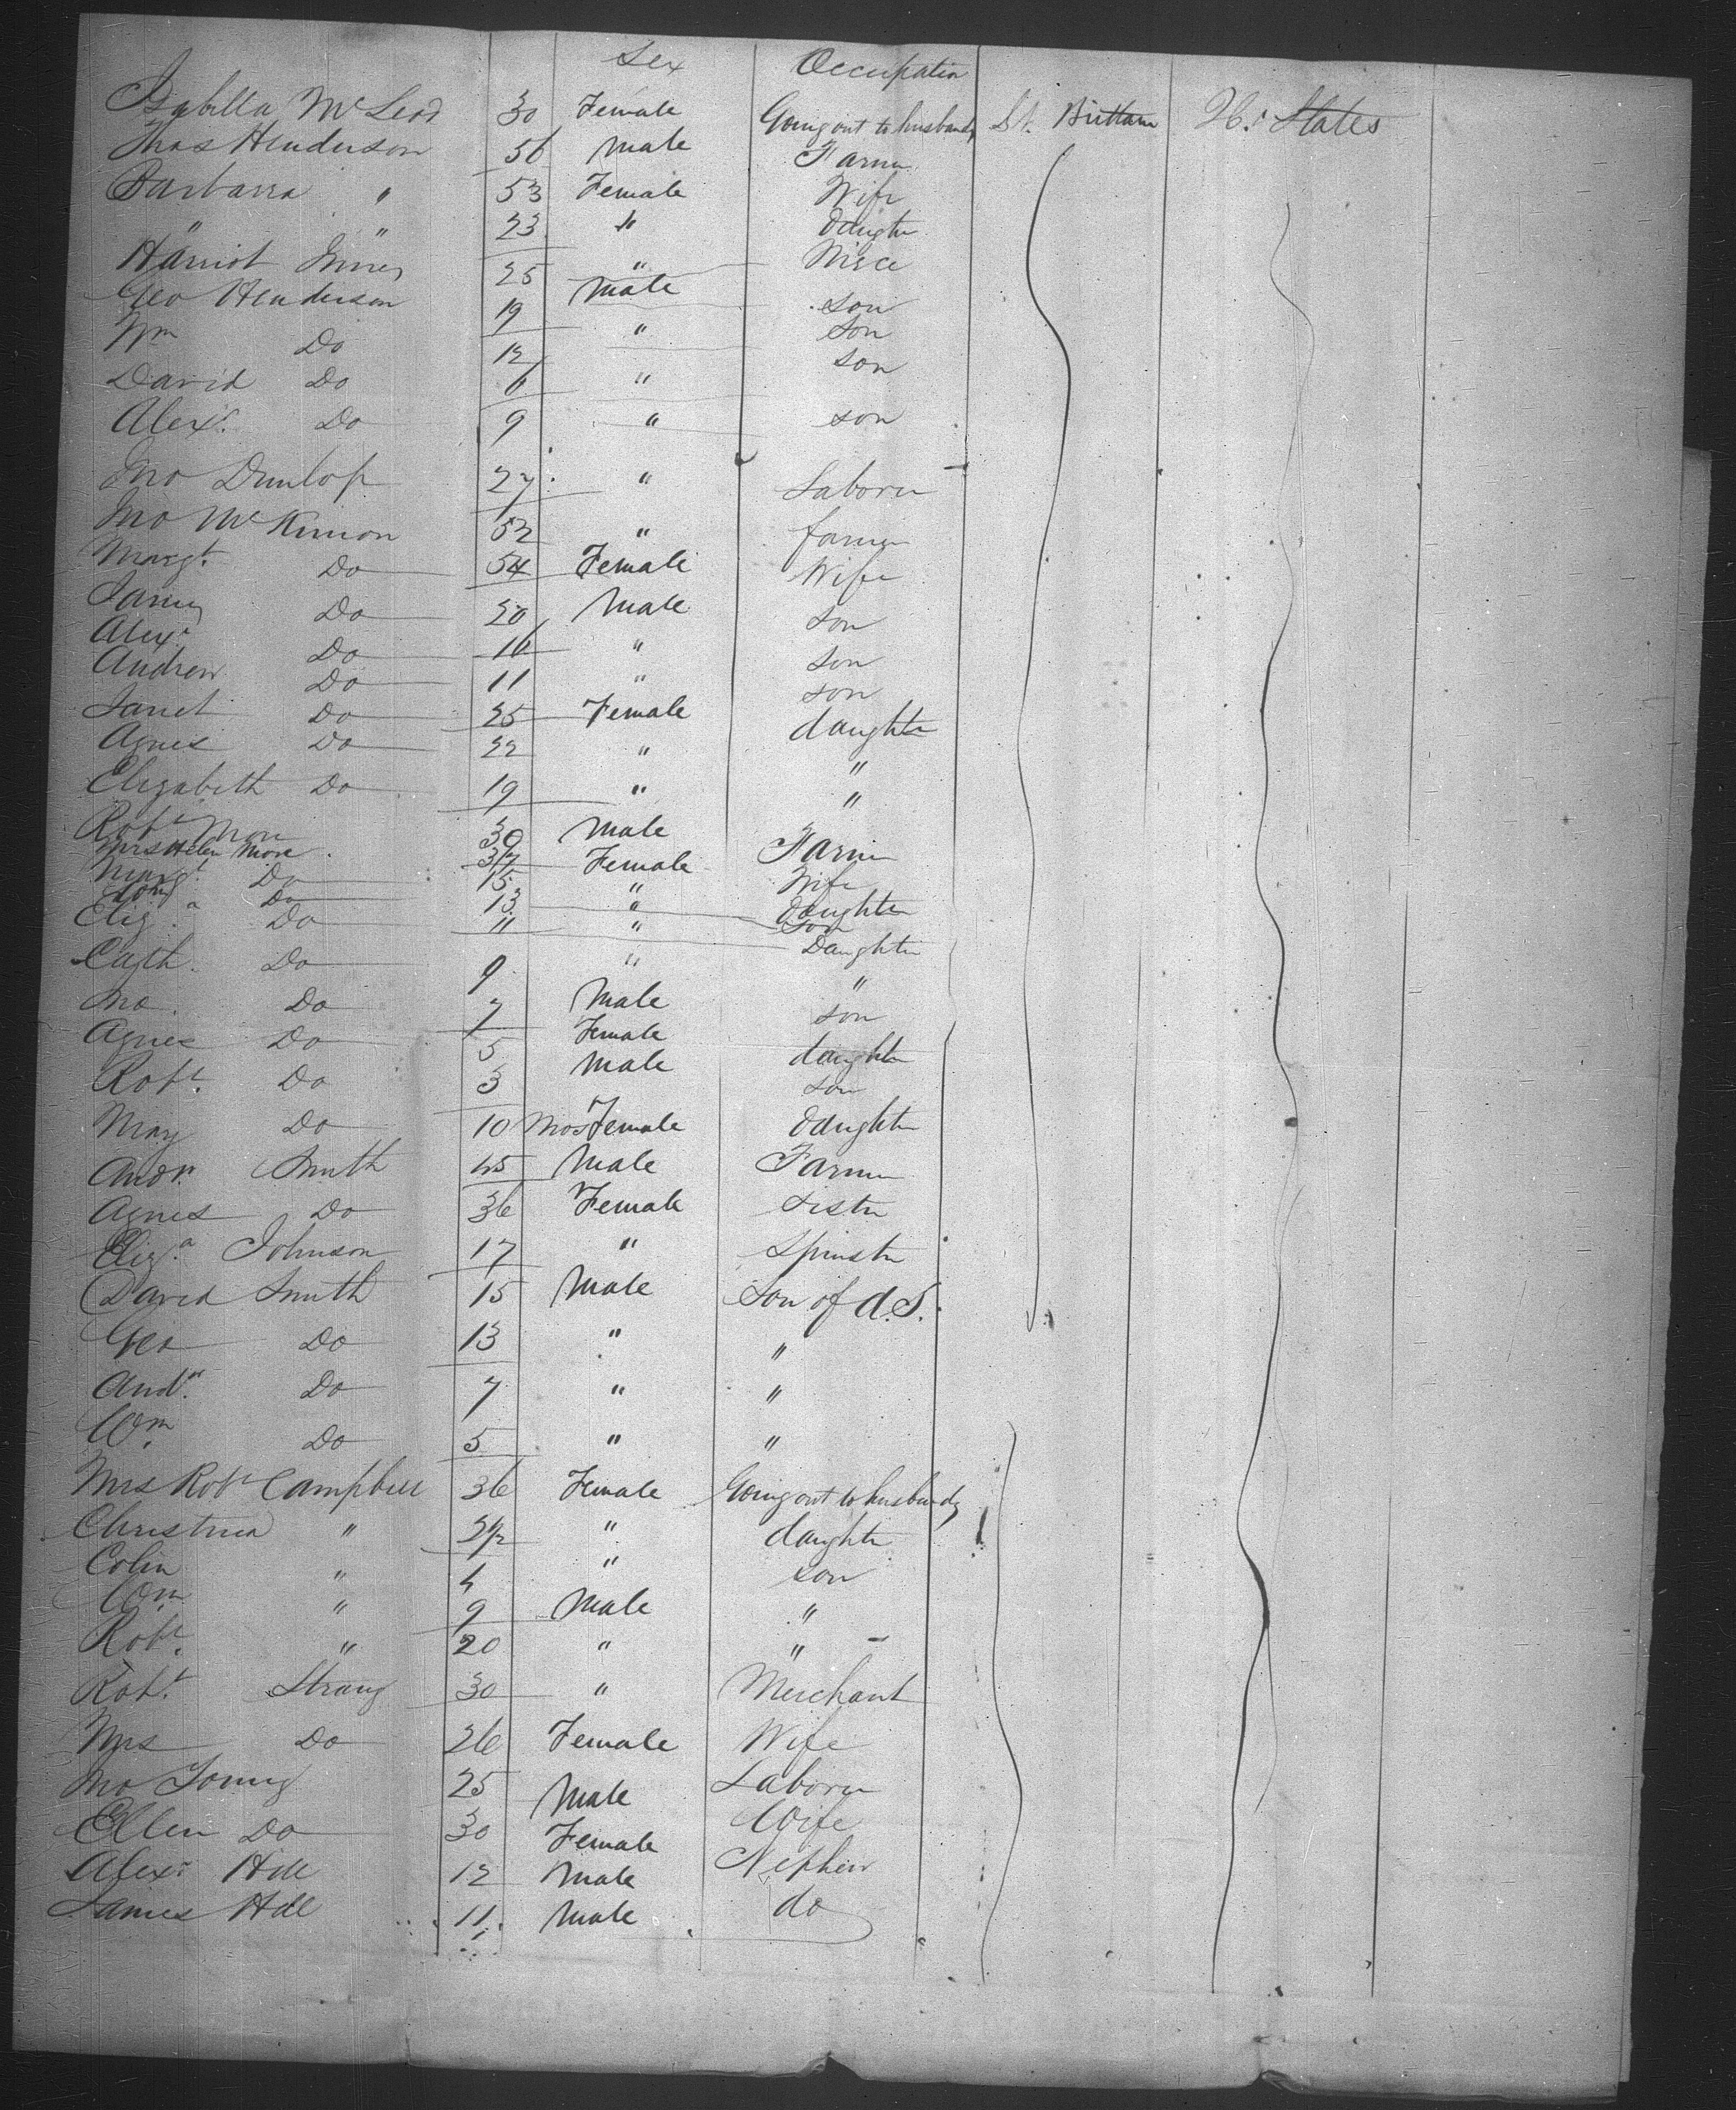 Sex Occupation
Isabella McLeod 30 Female Going out to husband Gt. Brittain U. States
Thos Henderson 56 Male Farmer
Barbara " 53 Female Wife
" " 23 " Daughter
Harriot Innes 25 " Niece
Geo Henderson 19 Male son
Wm Do 12 " Son
David Do 11 " son
Alexr. Do 9 " son
Jno Dunlop 27 " Laborer
Jno McKinnon 52 " farmer
Margt. Do 54 Female Wife
James Do 20 Male son
Alexr Do 16 " son
Andrew Do 11 " son
Janet Do 25 Female daughter
Agnes Do 22 " "
Elizabeth Do 19 " "
Robt More 39 Male Farmer
Mrs Helen More 37 Female Wife
Margt. Do 15 " Daughter
Do 13 " son
Eliza Do 11 " Daughter
Cath. Do 9 " "
Jno. Do 7 Male son
Agnes Do 5 Female daughter
Robt. Do 3 Male son
May Do 10 Mos Female Daughter
Andw. Smith 45 Male Farmer
Agnes Do 36 Female Sister
Eliza Johnson 17 " Spinster
David Smith 15 Male Son of A.S.
Geo Do 13 " "
Andw. Do 7 " "
Wm Do 5 " "
Mrs Robt Campbell 36 Female Going out to husband
Christina " 2½ " daughter
Colin " 4 " son
Wm " 9 Male "
Robt. " 20 " "
Robt. Strang 30 " Merchant
Mrs Do 26 Female Wife
Jno Young 25 Male Laborer
Ellen Do 30 Female Wife
Alexr Hill 12 Male Nephew
James Hill 11 Male do